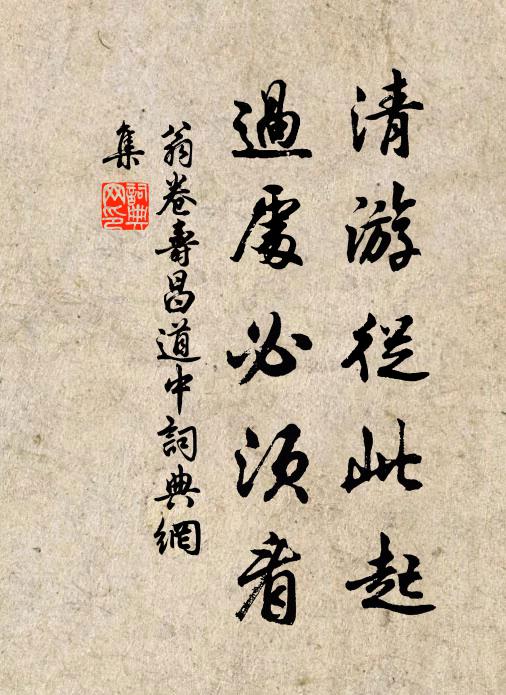 清游從此起
過處必須看
翁卷壽昌道中詞典網
集
詞典網印